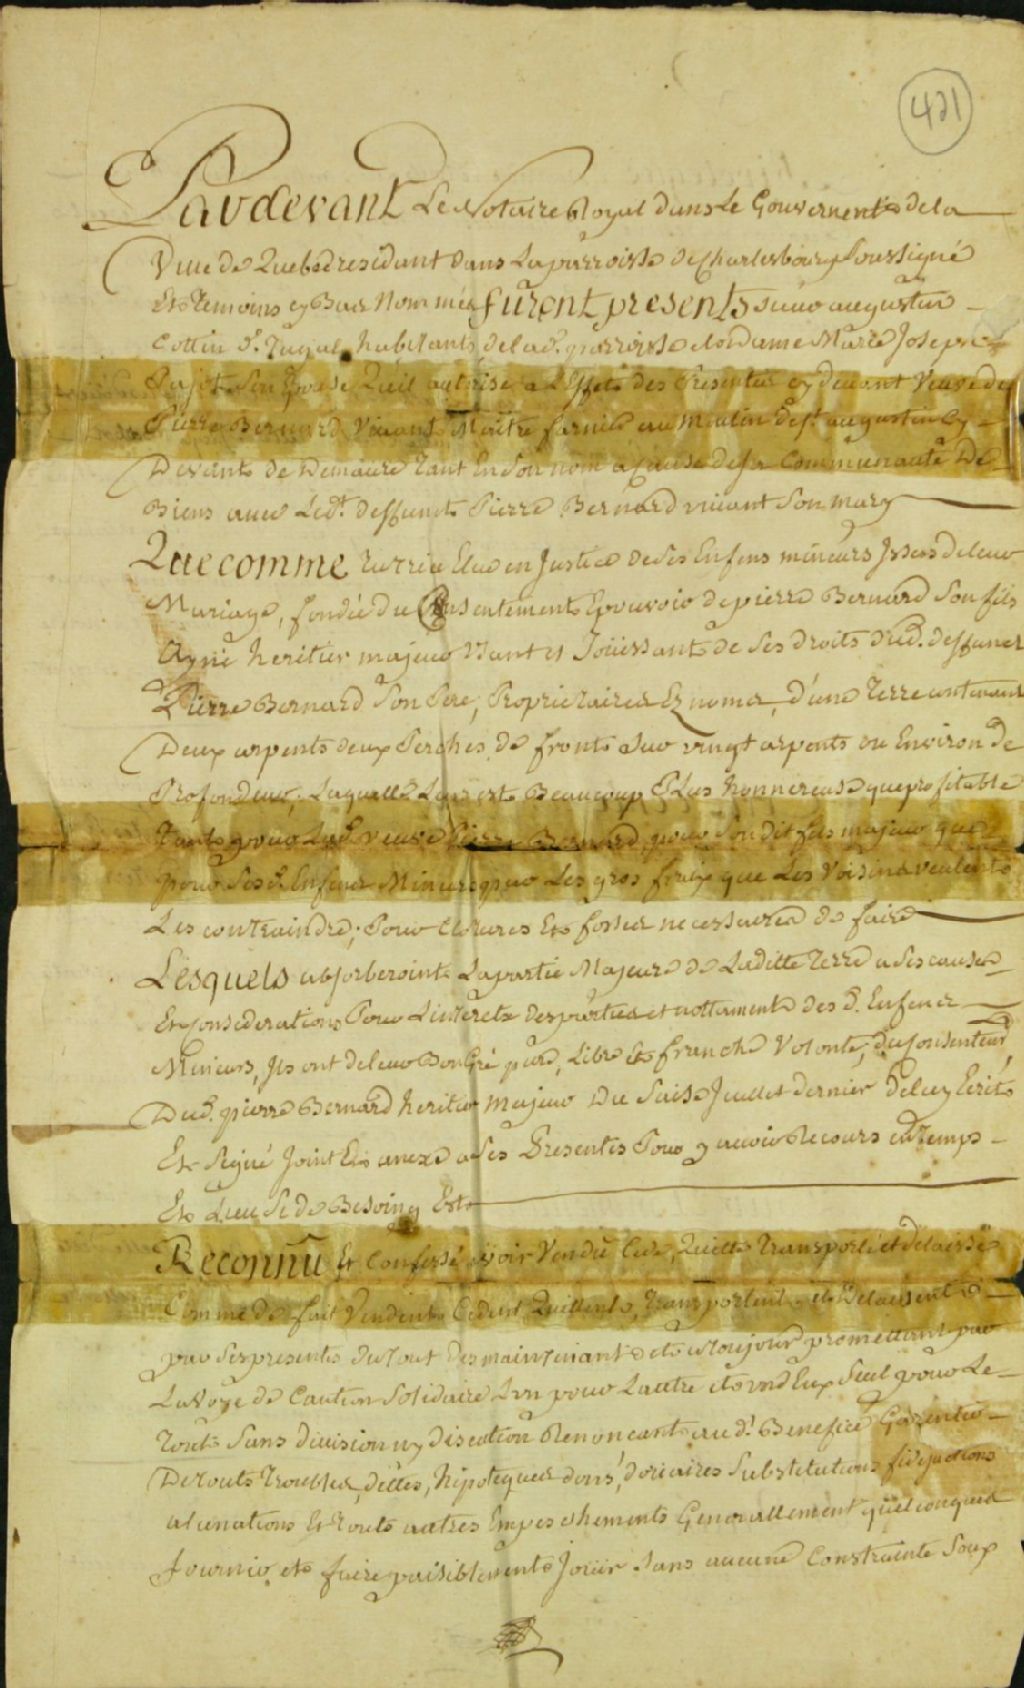 421
Pardevant Le Notaire Royal dans Le Gouvernemt dela
Ville de Quebec residant dans La parroisse de Charlesbourg Soussigné
Et Temoins cy Bas Nommés furent presents Sieur augustin
Cottin dt. Dugal, habitants de lad. parroisse et Dame Marie Joseph
Pajot Son Epouse Quil autorise a L'Effet des Presentes cy devant Veuve de
Pierre Bernard Vivant Maitre farnier au Moulin de st. augustin Cy
Devant de Demaure Tant En Son nom a Cause de sa Communauté De
Biens avec Ledt. deffunct Pierre Bernard vivant Son mary
Que comme Tutrice Elue en Justice de Ses Enfens mineurs Issus de leur
Mariage, fondée du Consentement Epouvoir de pierre Bernard Son fils
Ayné heritier majeur Usant et Joüissant de Ses droits dud. deffunct
Pierre Bernard Son Pere, Proprietaires Ez noms, d'une Terre contenant
Deux arpents deux Perches de front Sur vingt arpents ou Environ de
Profondeur, Laquelle Leur est Beaucoup Plus honnereuse que profitable
Tant pour Lad. veuve Pierre Bernard, pour Son dit fils majeur que
pour Ses d. Enfens Mineurs par Les gros fraix que Les Voisins veulent
Les contraindre; Pour Clotures Et fossés necessaires de faire
Lesquels absorberoint La partie Majeure de Laditte Terre a Ses causes
Et Considerations Pour L'interets des parties et nottament des d. Enfens
Mineurs, Ils ont de leur Bon Gré pure, Libre Et franche Volonté, du Consenteur
Dud. pierre Bernard heritier Majeur Du Saise Juillet dernier de luy Ecrit
Et Signé Joint Et anexe a Ses Presentes Pour y avoir Recours en Temps
Et Lieu Si de Besoing Est
Reconnu Et Confessé avoir Vendu Cede, Quitte Transporté et delaissé
Comme de fait Vendent Cedent Quittent, Transportent et Delaissent
par Ses presentes du Tout des maintenant et a Toujours promettant par
La Voye de Caution Solidaire L'un pour L'autre et un d'Eux Seul pour Le
Tout Sans division ny discution Renoncant au dt. Benefice Garentir
De Touts Troubles, dettes, hipoteques dons, doüaires Substitutions
alienations Et Touts autres Empeschements Generallement quelconques
fournir et faire paisiblement Joüir Sans aucune Contrainte Soux